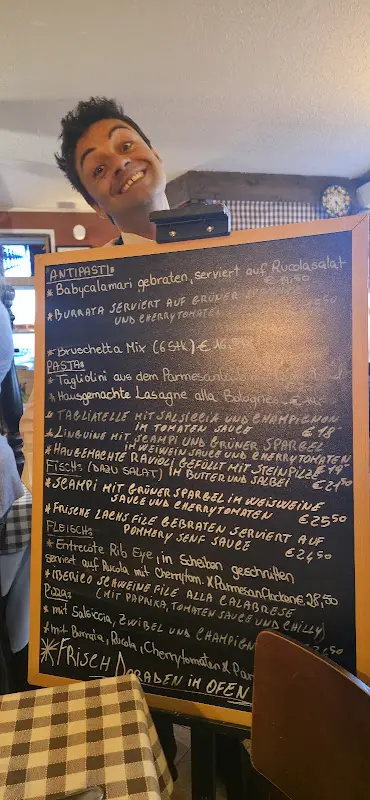 ANTIPASTI:
* Babycalamari gebraten, serviert auf Rucolasalat
* BURRATA SERVIERT AUF GRÜNER
UND CHERRYTOMATEN
* Bruschetta Mix (6 Stk) € 16,
PASTA:
* Tagliolini aus dem Parmesan
* Hausgemachte Lasagne alla Bolognes
* TAGLIATELLE MIT SALSICCIA UND CHAMPIGNON
IM TOMATEN SAUCE € 18
* LINGUINE MIT SCAMPI UND GRÜNER SPARGEL
IM WEIWEIN SAUCE UND CHERRYTOMATEN
* HAUGEMACHTE RAVIOLI GEFÜLLT MIT STEINPILZE € 19
FISCH: (DAZU SALAT) IM BUTTER UND SALBEI € 21
* SCAMPI MIT GRÜNER SPARGEL IM WEISWEINE
SAUCE UND CHERRYTOMATEN € 25,50
* FRISCHE LACHS FILE GEBRATEN SERVIERT AUF
POMMERY SENF SAUCE € 24,50
FLEISCH:
* Entrecôte Rib Eye, in Scheiben geschnitten
serviert auf Rucola mit Cherrytom. & Parmesan 28,50
* IBERICO SCHWEINE FILE ALLA CALABRESE
Pizza: (MIT PAPRIKA, TOMATEN SAUCE UND CHILLY)
* mit Salsiccia, ZWIBEL UND CHAMPIGN
* mit Burrata, Rucola, Cherrytomaten & Par
* FRISCH DORADEN IM OFEN